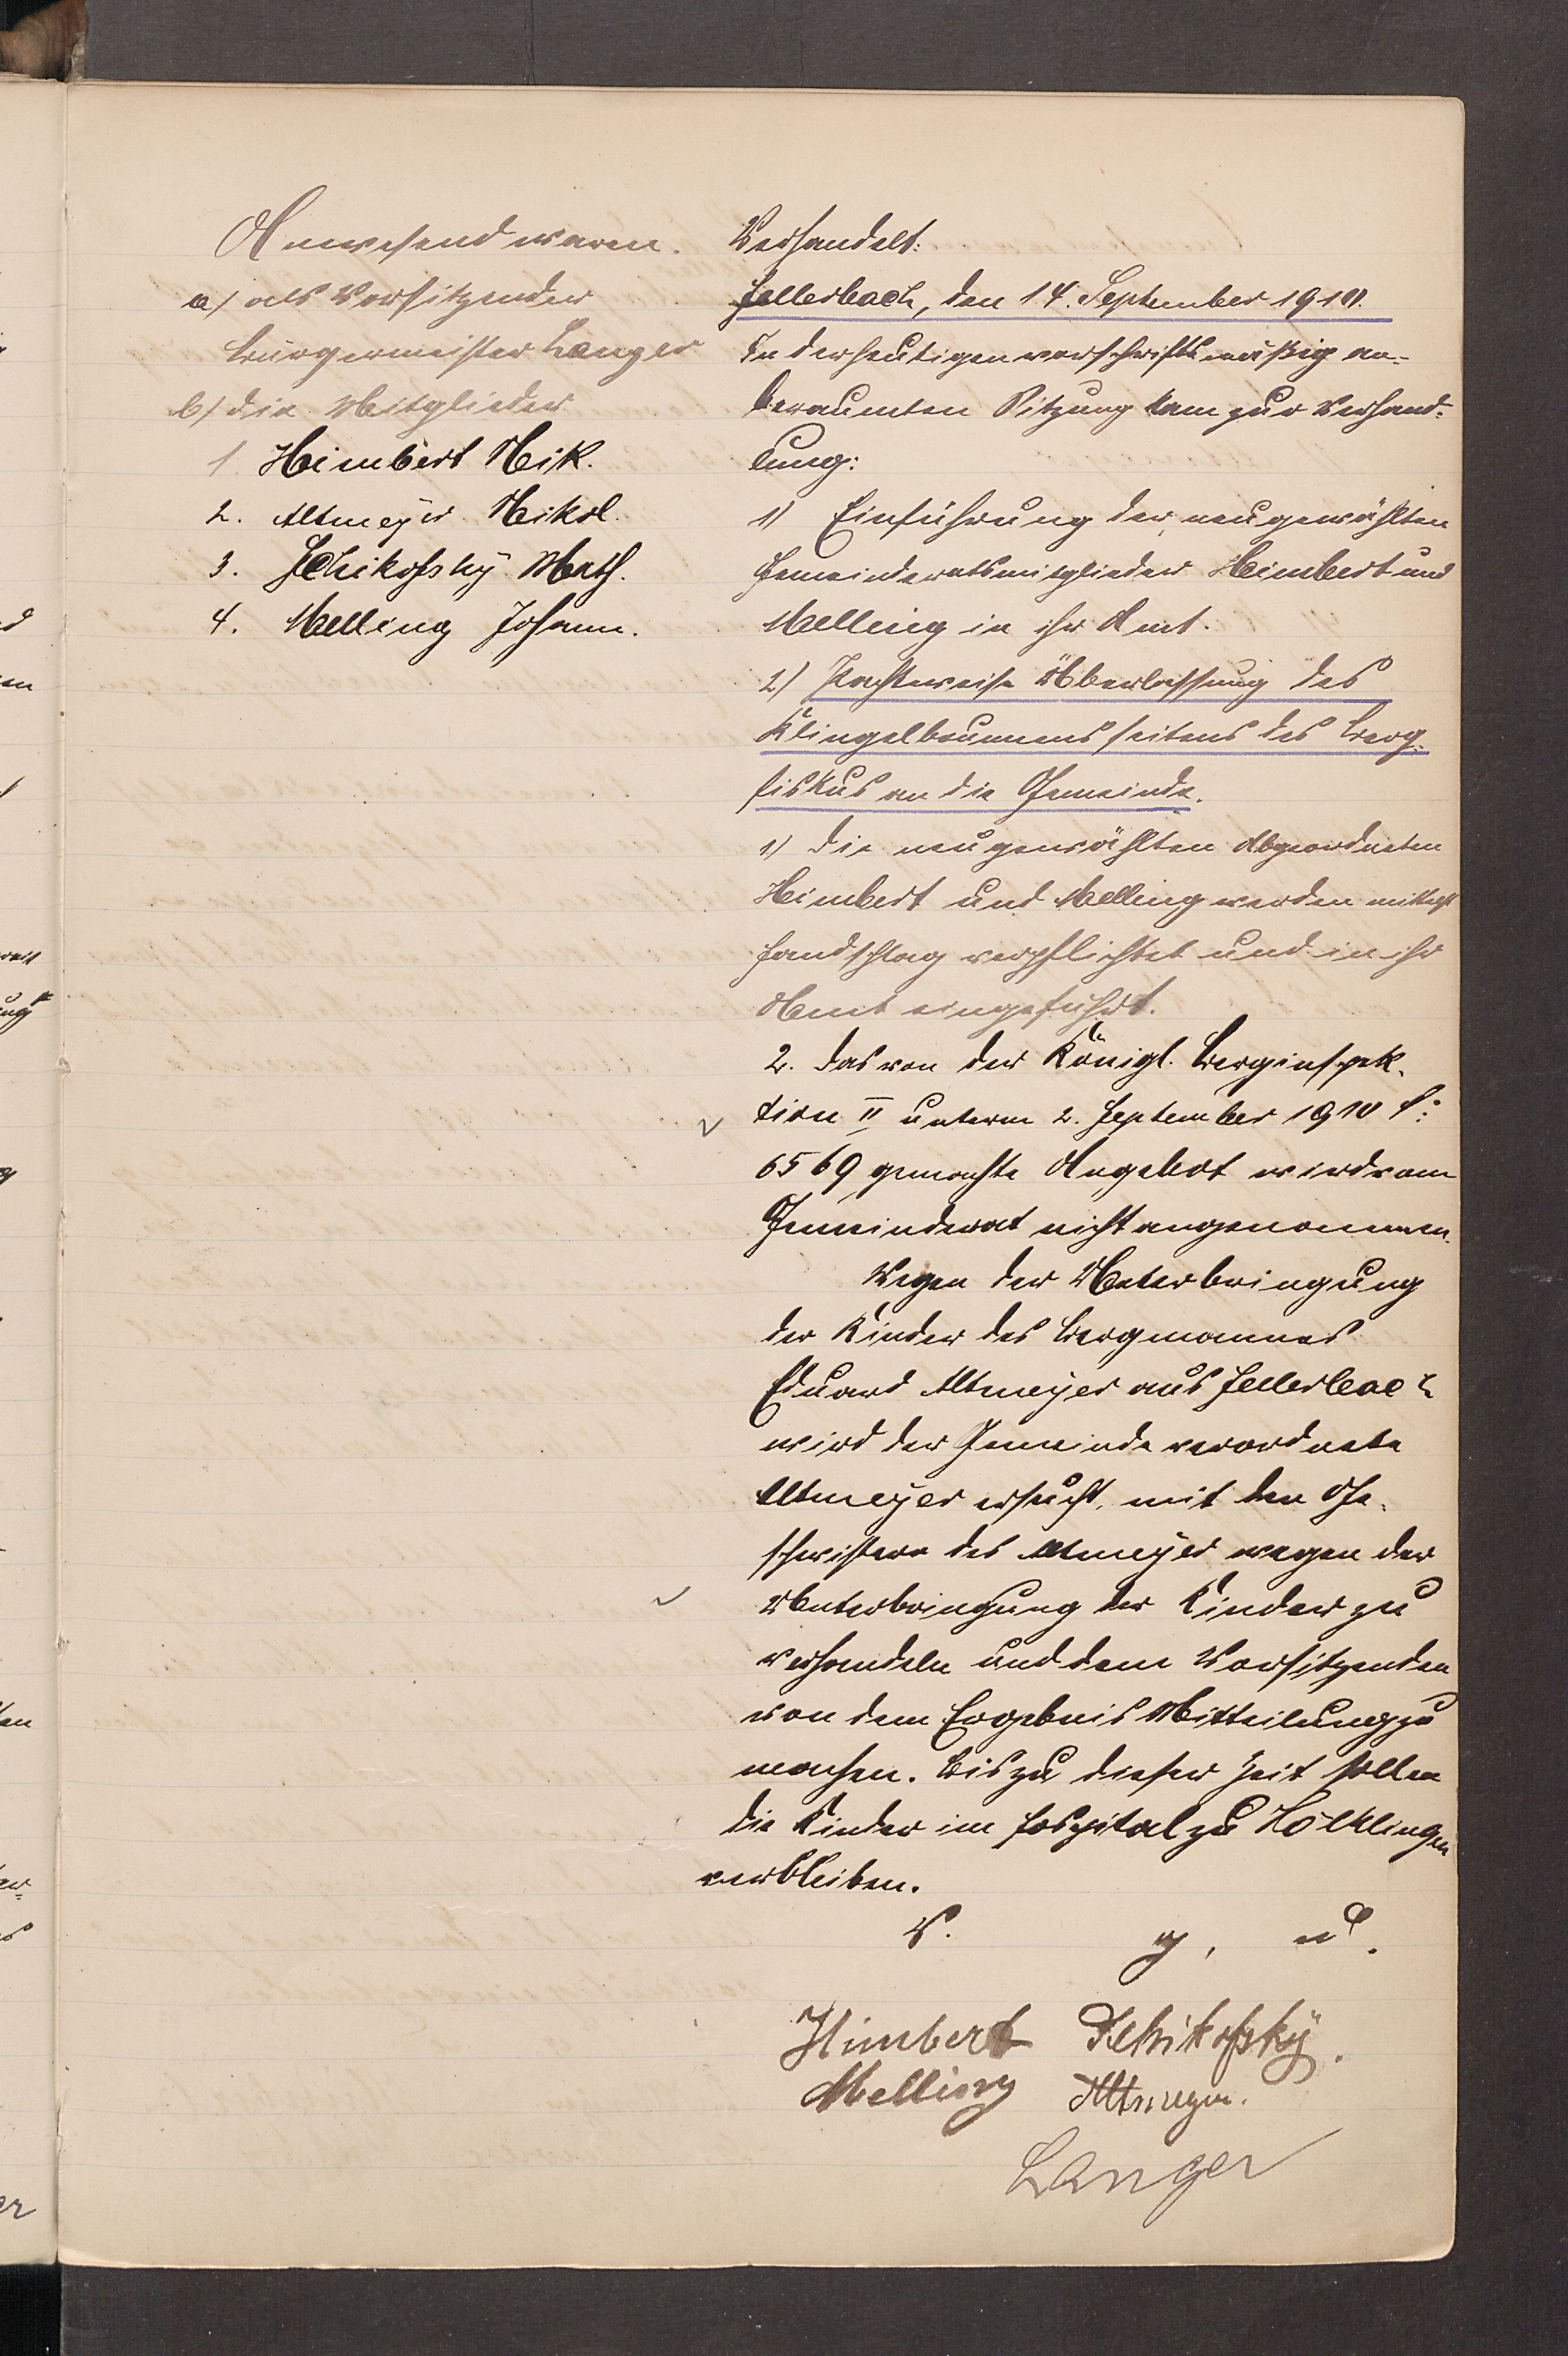 Anwesend waren.
a) als Vorsitzender
Bürgermeister Langer
b) die Mitglieder
1 Himbert Nik.
2. Altmeyer Nikol.
3. Schikofsky Math.
4. Melling Johann.
Verhandelt:
den 14. September 1910.
In der heutigen vorschriftsmäßig an-
beraumten Sitzung kam zur Verhand-
lung:
1) Einführung der neugewählten
Gemeinderatsmitglieder Himbert und
Melling in ihr Amt.
2) Pachtweise Überlassung des
Klingelbrunnens seitens des Berg-
fiskus an die Gemeinde.
1) Die neugewählten Abgeordneten
Himbert und Melling werden mittelst
Handschlag verpflichtet und in ihr
Amt eingeführt.
2. Das von der Königl. Berginspek-
tion II unterm 2. September 1910 I:
6569 gemachte Angebot wird vom
Gemeinderat nicht angenommen.
Wegen der Unterbringung
der Kinder des Bergmannes
Eduard Altmeyer aus
wird der Gemeindeverordnete
Altmeyer ersucht, mit den Ge-
schwistern des Altmeyer wegen der
Unterbringung der Kinder zu
verhandeln und dem Vorsitzenden
von dem Ergebnis Mitteilung zu
machen. Bis zu dieser Zeit sollen
die Kinder im Hospital zu Völklingen
verbleiben.
V. g. u.
Himbert Schikofsky.
Melling Altmeyer.
Langer